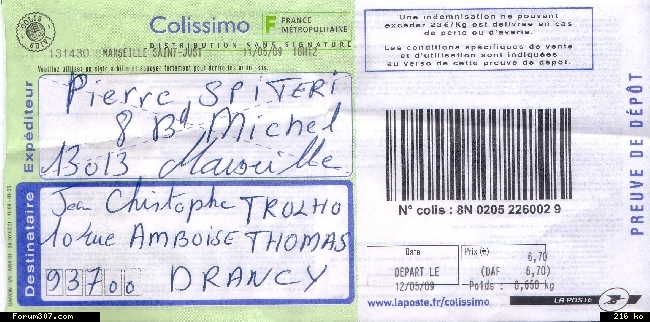 Colissimo F FRANCE MÉTROPOLITAINE
DISTRIBUTION SANS SIGNATURE
131430 MARSEILLE SAINT-JUST 11/05/09 16H12
Expéditeur
Pierre SPITERI
8 Bd Michel
13013 Marseille
Destinataire
Jean Christophe TROLHO
10 rue AMBOISE THOMAS
93700 DRANCY
Une indemnisation ne pouvant
excéder 23€/Kg est délivrée en cas
de perte ou d'avarie.
Les conditions spécifiques de vente
et d'utilisation sont indiquées
au verso de cette preuve de dépôt.
PREUVE DE DÉPÔT
N° colis : 8N 0205 226002 9
Date
DEPART LE
12/05/09
Prix (€)
6,70
(DAF 6,70)
Poids : 0,650 kg
www.laposte.fr/colissimo
LA POSTE
Forum307.com
216 ko